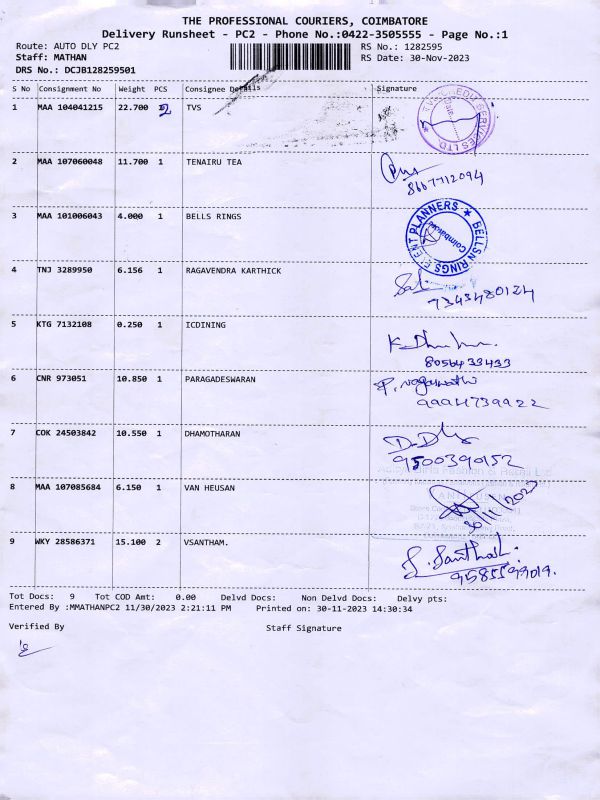 THE PROFESSIONAL COURIERS, COIMBATORE
Delivery Runsheet - PC2 - Phone No.:0422-3505555 - Page No.:1
Route: AUTO DLY PC2 RS No.: 1282595
Staff: MATHAN RS Date: 30-Nov-2023
DRS No.: DCJB128259501
S No Consignment No Weight PCS Consignee Details Signature
1 MAA 104041215 22.700 2 TVS
2 MAA 107060048 11.700 1 TENAIRU TEA
8667712094
3 MAA 101006043 4.000 1 BELLS RINGS
BELLSN RINGS EVENT PLANNERS
Coimbatore
4 TNJ 3289950 6.156 1 RAGAVENDRA KARTHICK
7343480124
5 KTG 7132108 0.250 1 ICDINING
8056433433
6 CNR 973051 10.850 1 PARAGADESWARAN
9994739922
7 COK 24503842 10.550 1 DHAMOTHARAN
9500390152
8 MAA 107085684 6.150 1 VAN HEUSAN
30/11/2023
9 WKY 28586371 15.100 2 VSANTHAM.
9585599019.
Tot Docs: 9 Tot COD Amt: 0.00 Delvd Docs: Non Delvd Docs: Delvy pts:
Entered By :MMATHANPC2 11/30/2023 2:21:11 PM Printed on: 30-11-2023 14:30:34
Verified By Staff Signature